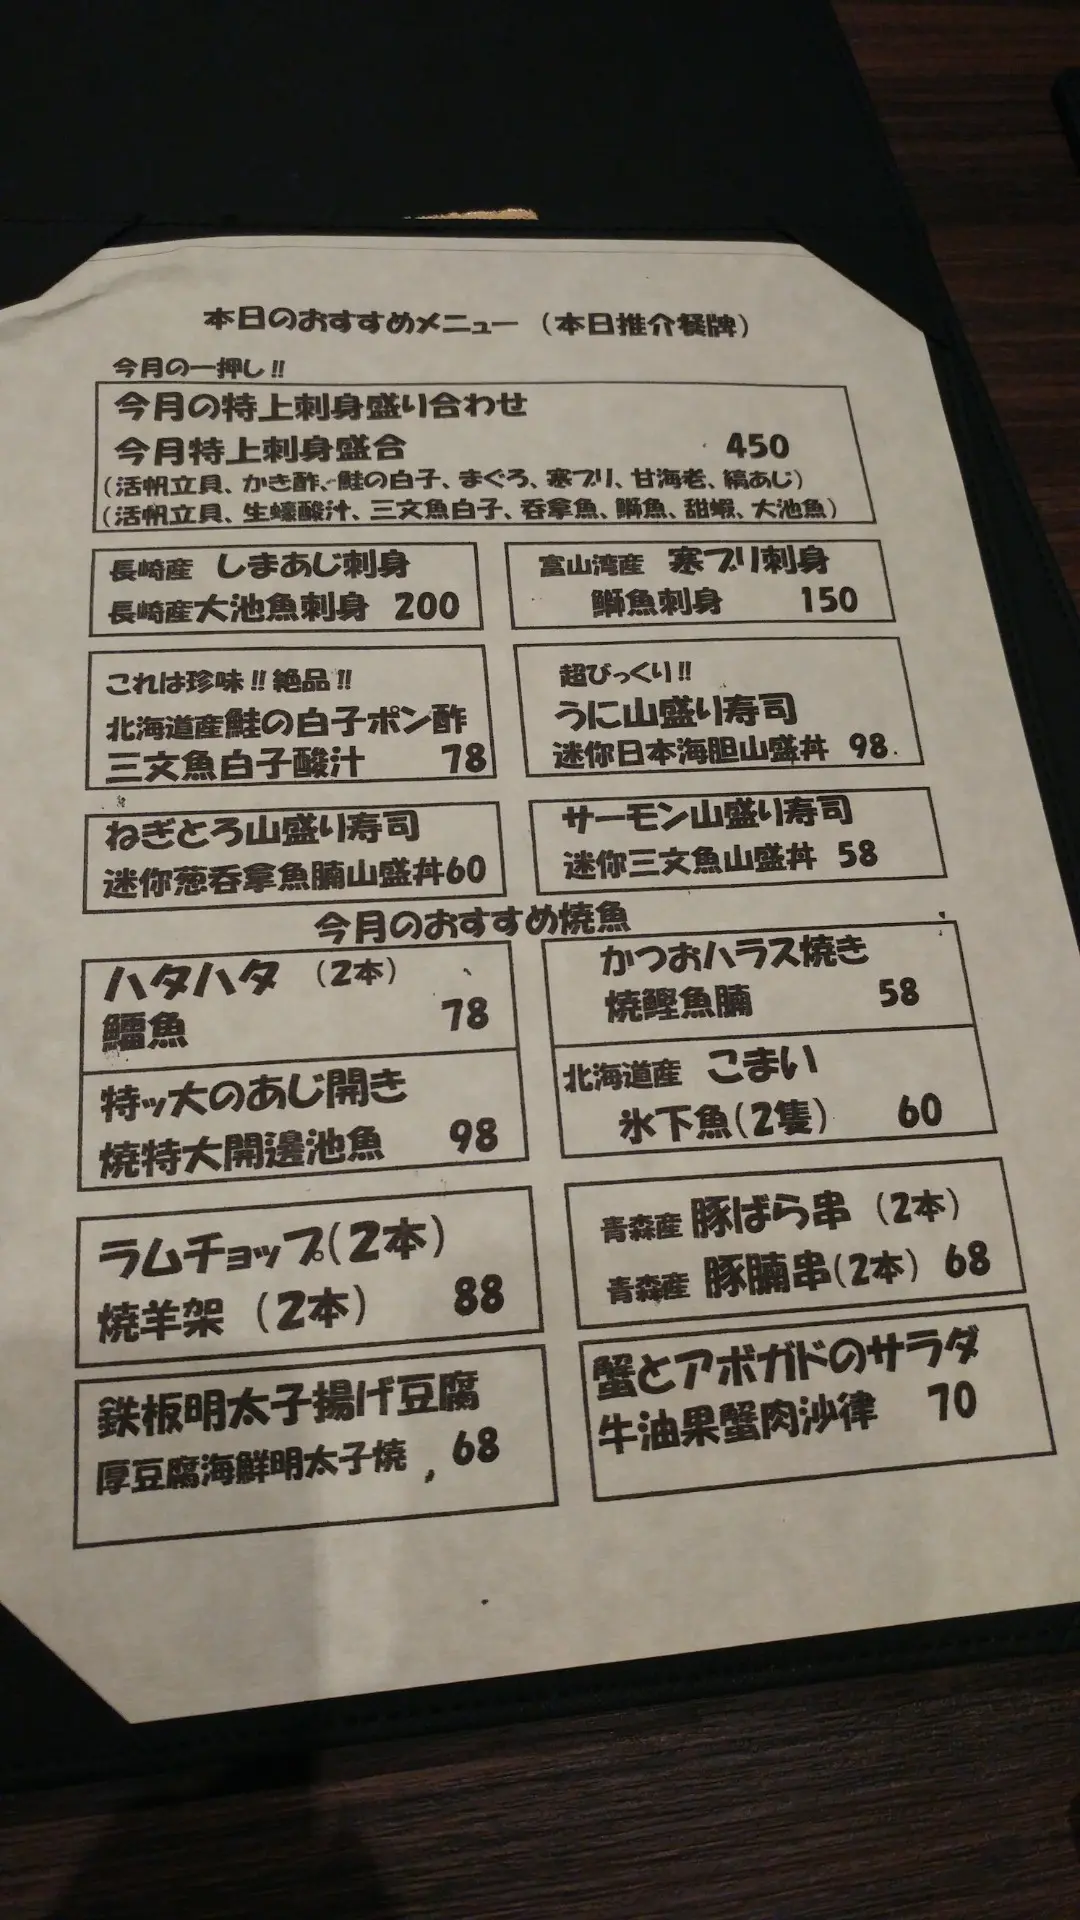 本日のおすすめメニュー （本日推介餐牌）
今月の一押し!!
今月の特上刺身盛り合わせ
今月特上刺身盛合 450
（活帆立貝、かき酢、鮭の白子、まぐろ、寒ブリ、甘海老、縞あじ）
（活帆立貝、生蠔酸汁、三文魚白子、呑拿魚、鰤魚、甜蝦、大池魚）
長崎産 しまあじ刺身
長崎産大池魚刺身 200
富山湾産 寒ブリ刺身
鰤魚刺身 150
これは珍味!!絶品!!
北海道産鮭の白子ポン酢
三文魚白子酸汁 78
超びっくり!!
うに山盛り寿司
迷你日本海胆山盛丼 98
ねぎとろ山盛り寿司
迷你葱呑拿魚腩山盛丼60
サーモン山盛り寿司
迷你三文魚山盛丼 58
今月のおすすめ焼魚
ハタハタ （2本）
鱩魚 78
かつおハラス焼き
焼鰹魚腩 58
特ッ大のあじ開き
焼特大開邊池魚 98
北海道産 こまい
氷下魚（2隻） 60
ラムチョップ（2本）
焼羊架 （2本） 88
青森産 豚ばら串 （2本）
青森産 豚腩串（2本） 68
鉄板明太子揚げ豆腐
厚豆腐海鮮明太子焼 68
蟹とアボガドのサラダ
牛油果蟹肉沙律 70